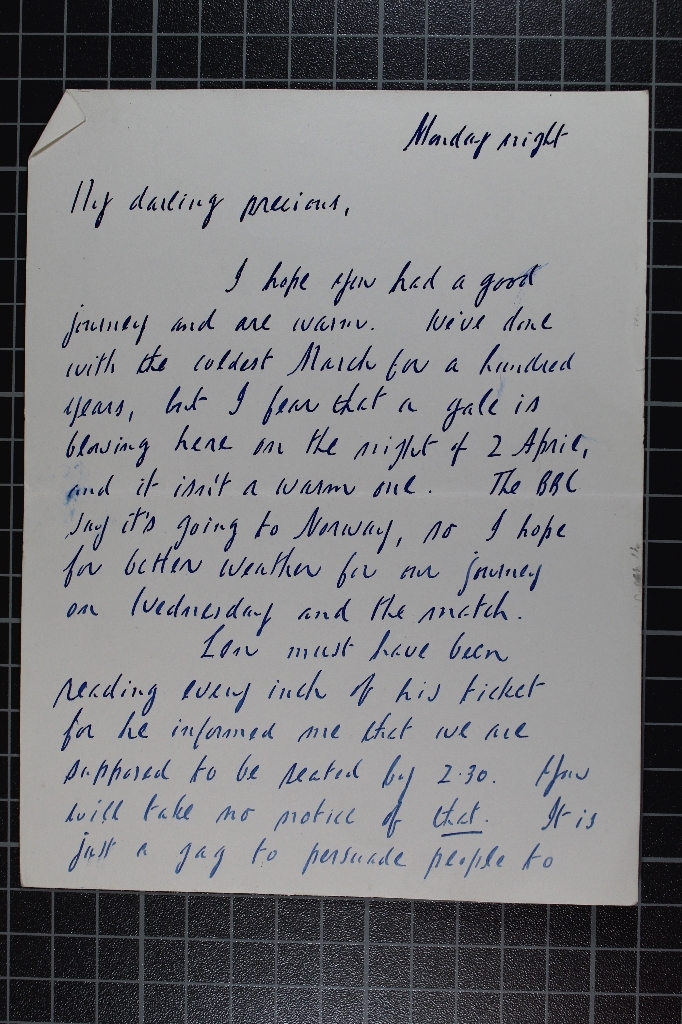 Monday night
My darling precious,
I hope you had a good
journey and are warm. We've done
with the coldest March for a hundred
years, but I fear that a gale is
blowing here on the night of 2 April,
and it isn't a warm one. The BBC
say it's going to Norway, so I hope
for better weather for our journey
on Wednesday and the match.
Lou must have been
reading every inch of his ticket
for he informed me that we are
supposed to be seated by 2.30. You
will take no notice of that. It is
just a gag to persuade people to